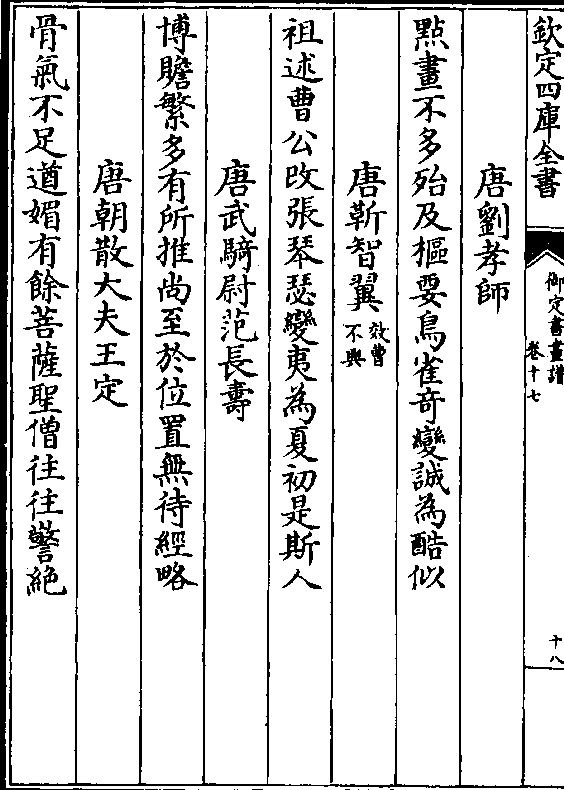 欽定四庫全書
御定書畫譜
卷十七
十八
唐劉孝師
點畫不多殆及樞要鳥雀奇變誠為酷似
唐靳智翼效曹不興
祖述曹公改張琴瑟變夷為夏初是斯人
唐武騎尉范長壽
博贍繁多有所推尚至於位置無待經略
唐朝散大夫王定
骨氣不足遒媚有餘菩薩聖僧往往警絶